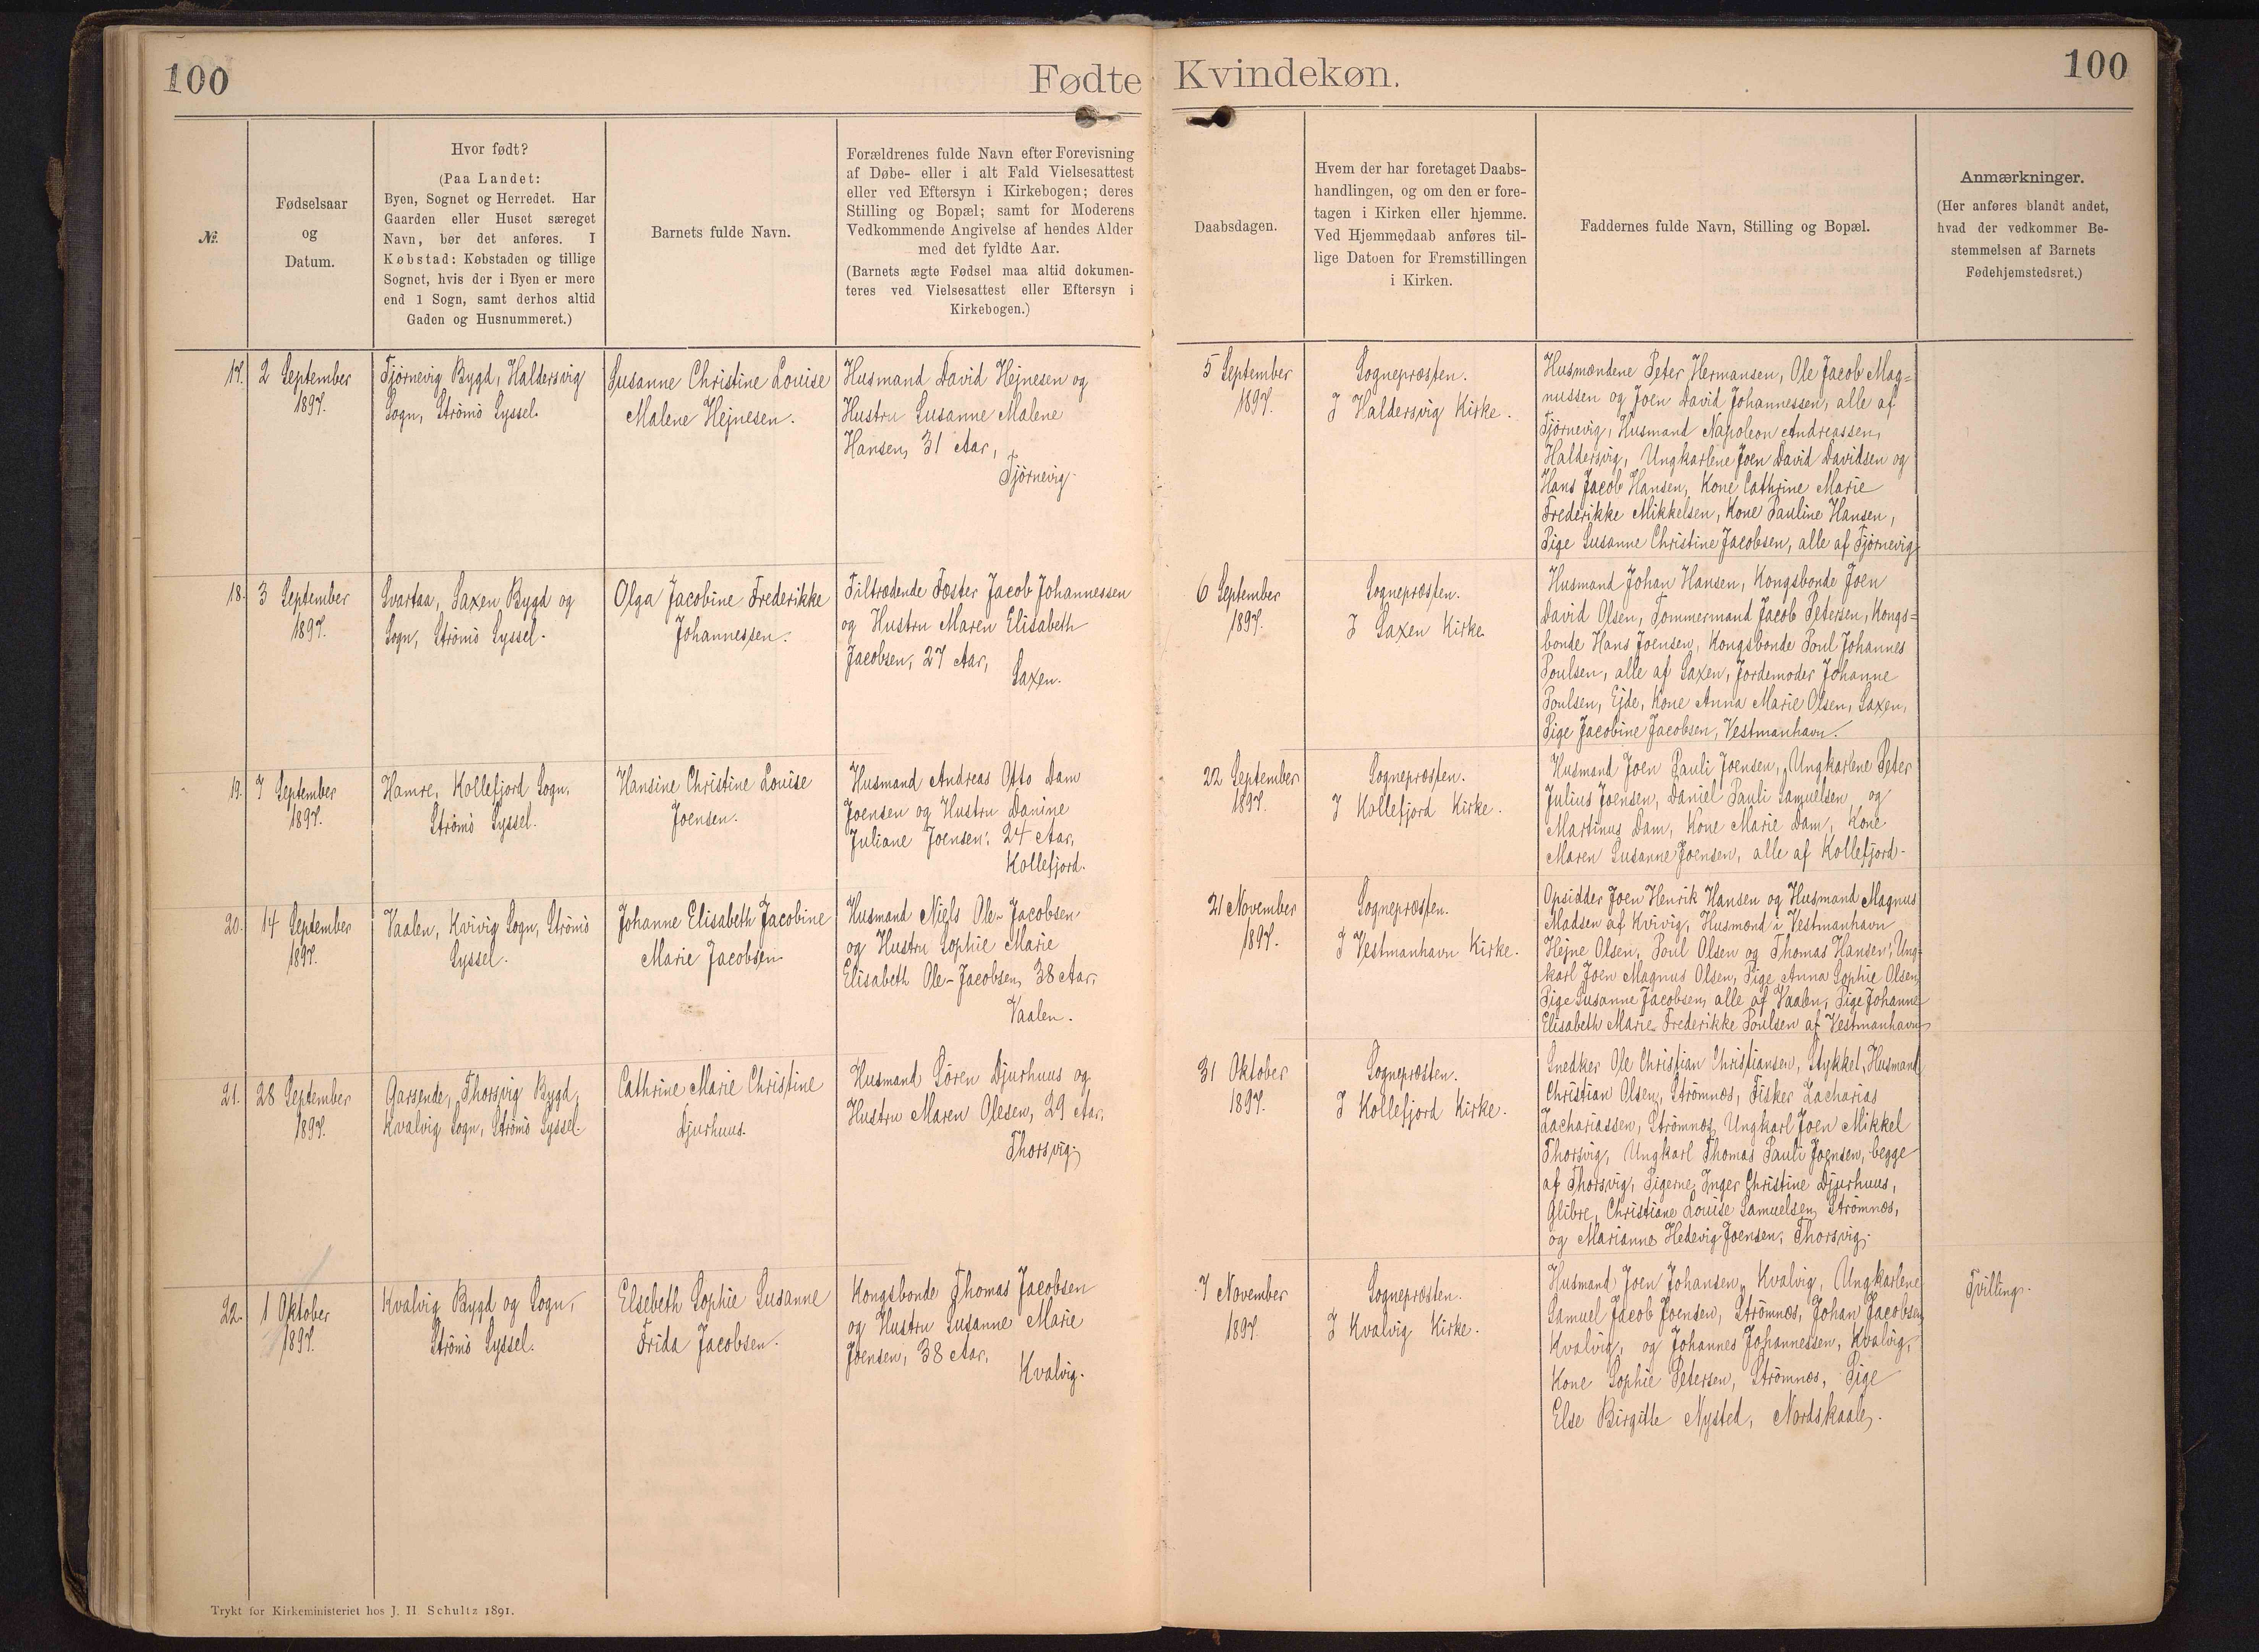 100
Fødte
Kvindekøn.
100
№.
Fødselsaar
og
Datum.
Hvor født?
(Paa Landet:
Byen, Sognet og Herredet. Har
Gaarden eller Huset særeget
Navn, bør det anføres. I
Købstad: Købstaden og tillige
Sognet, hvis der i Byen er mere
end 1 Sogn, samt derhos altid
Gaden og Husnummeret.)
Barnets fulde Navn.
Forældrenes fulde Navn efter Forevisning
af Døbe- eller i alt Fald Vielsesattest
eller ved Eftersyn i Kirkebogen; deres
Stilling og Bopæl; samt for Moderens
Vedkommende Angivelse af hendes Alder
med det fyldte Aar.
(Barnets ægte Fødsel maa altid dokumen-
teres ved Vielsesattest eller Eftersyn i
Kirkebogen.)
Daabsdagen.
Hvem der har foretaget Daabs-
handlingen, og om den er fore-
tagen i Kirken eller hjemme.
Ved Hjemmedaab anføres til-
lige Datoen for Fremstillingen
i Kirken.
Faddernes fulde Navn, Stilling og Bopæl.
Anmærkninger.
(Her anføres blandt andet,
hvad der vedkommer Be-
stemmelsen af Barnets
Fødehjemstedsret.)
17.
2 September
1897.
Tjørnevig Bygd, Haldersvig
Sogn, Strömö Syssel.
Susanne Christine Louise
Malene Hejnesen.
Husmand David Hejnesen og
Hustru Susanne Malene
Hansen, 31 Aar,
Tjörnevig.
5 September
1897.
Sognepræsten.
I Haldersvig Kirke.
Husmændene Peter Hermansen, Ole Jacob Mag=
nussen og Joen David Johannessen, alle af
Tjörnevig, Husmand Napoleon Andreassen,
Haldersvig, Ungkarlene Joen David Davidsen og
Hans Jacob Hansen, Kone Cathrine Marie
Frederikke Mikkelsen, Kone Pauline Hansen,
Pige Susanne Christine Jacobsen, alle af Tjörnevig.
18.
3 September
1897.
Svartaa, Saxen Bygd og
Sogn, Strömö Syssel.
Olga Jacobine Frederikke
Johannessen.
Tiltrædende Fæster Jacob Johannessen
og Hustru Maren Elisabeth
Jacobsen, 27 Aar,
Saxen.
6 September
1897.
Sognepræsten.
I Saxen Kirke.
Husmand Johan Hansen, Kongsbonde Joen
David Olsen, Tømmermand Jacob Petersen, Kongs=
bonde Hans Joensen, Kongsbonde Poul Johannes
Poulsen, alle af Saxen, Jordemoder Johanne
Poulsen, Ejde, Kone Anna Marie Olsen, Saxen,
Pige Jacobine Jacobsen, Vestmanhavn.
19.
7 September
1897.
Hamre, Kollefjord Sogn,
Strömö Syssel.
Hansine Christine Louise
Joensen.
Husmand Andreas Otto Dam
Joensen og Hustru Danine
Juliane Joensen, 24 Aar,
Kollefjord.
22 September
1897.
Sognepræsten.
I Kollefjord Kirke.
Husmand Joen Pauli Joensen, Ungkarlene Peter
Julius Joensen, Daniel Pauli Samuelsen og
Martinus Dam, Kone Marie Dam, Kone
Maren Susanne Joensen, alle af Kollefjord.
20.
14 September
1897.
Vaalen, Kvivig Sogn, Strömö
Syssel.
Johanne Elisabeth Jacobine
Marie Jacobsen.
Husmand Niels Ole-Jacobsen
og Hustru Sophie Marie
Elisabeth Ole-Jacobsen, 38 Aar,
Vaalen.
21 November
1897.
Sognepræsten.
I Vestmanhavn Kirke.
Opsidder Joen Henrik Hansen og Husmand Magnus
Madsen af Kvivig, Husmænd i Vestmanhavn
Hejne Olsen, Poul Olsen og Thomas Hansen, Ung=
karl Joen Magnus Olsen, Pige Anna Sophie Olsen,
Pige Susanne Jacobsen, alle af Vaalen, Pige Johanne
Elisabeth Marie Frederikke Poulsen af Vestmanhavn
21.
28 September
1897.
Garsende, Thorsvig Bygd,
Kvalvig Sogn, Strömö Syssel.
Cathrine Marie Christine
Djurhuus.
Husmand Sören Djurhuus og
Hustru Maren Olesen, 29 Aar,
Thorsvig.
31 Oktober
1897.
Sognepræsten.
I Kollefjord Kirke.
Snedker Ole Christian Christiansen, Stykket, Husmand
Christian Olsen, Strömnæs, Fisker Zacharias
Zachariassen, Strömnæs, Ungkarl Joen Mikkel
Thorsvig, Ungkarl Thomas Pauli Joensen, begge
af Thorsvig, Pigerne Inger Christine Djurhuus,
Glibre, Christiane Louise Samuelsen, Strömnæs,
og Marianne Hedevig Joensen, Thorsvig.
22.
1 Oktober
1897.
Kvalvig Bygd og Sogn,
Strömö Syssel.
Elsebeth Sophie Susanne
Frida Jacobsen.
Kongsbonde Thomas Jacobsen
og Hustru Susanne Marie
Joensen, 38 Aar,
Kvalvig.
7 November
1897.
Sognepræsten.
I Kvalvig Kirke.
Husmand Joen Johansen, Kvalvig, Ungkarlene
Samuel Jacob Joensen, Strömnæs, Johan Jacobsen
Kvalvig, og Johannes Johannessen, Kvalvig,
Kone Sophie Petersen, Strömnæs, Pige
Else Birgitte Nysted, Nordskaale.
Tvilling.
Trykt for Kirkeministeriet hos J. H Schultz 1891.